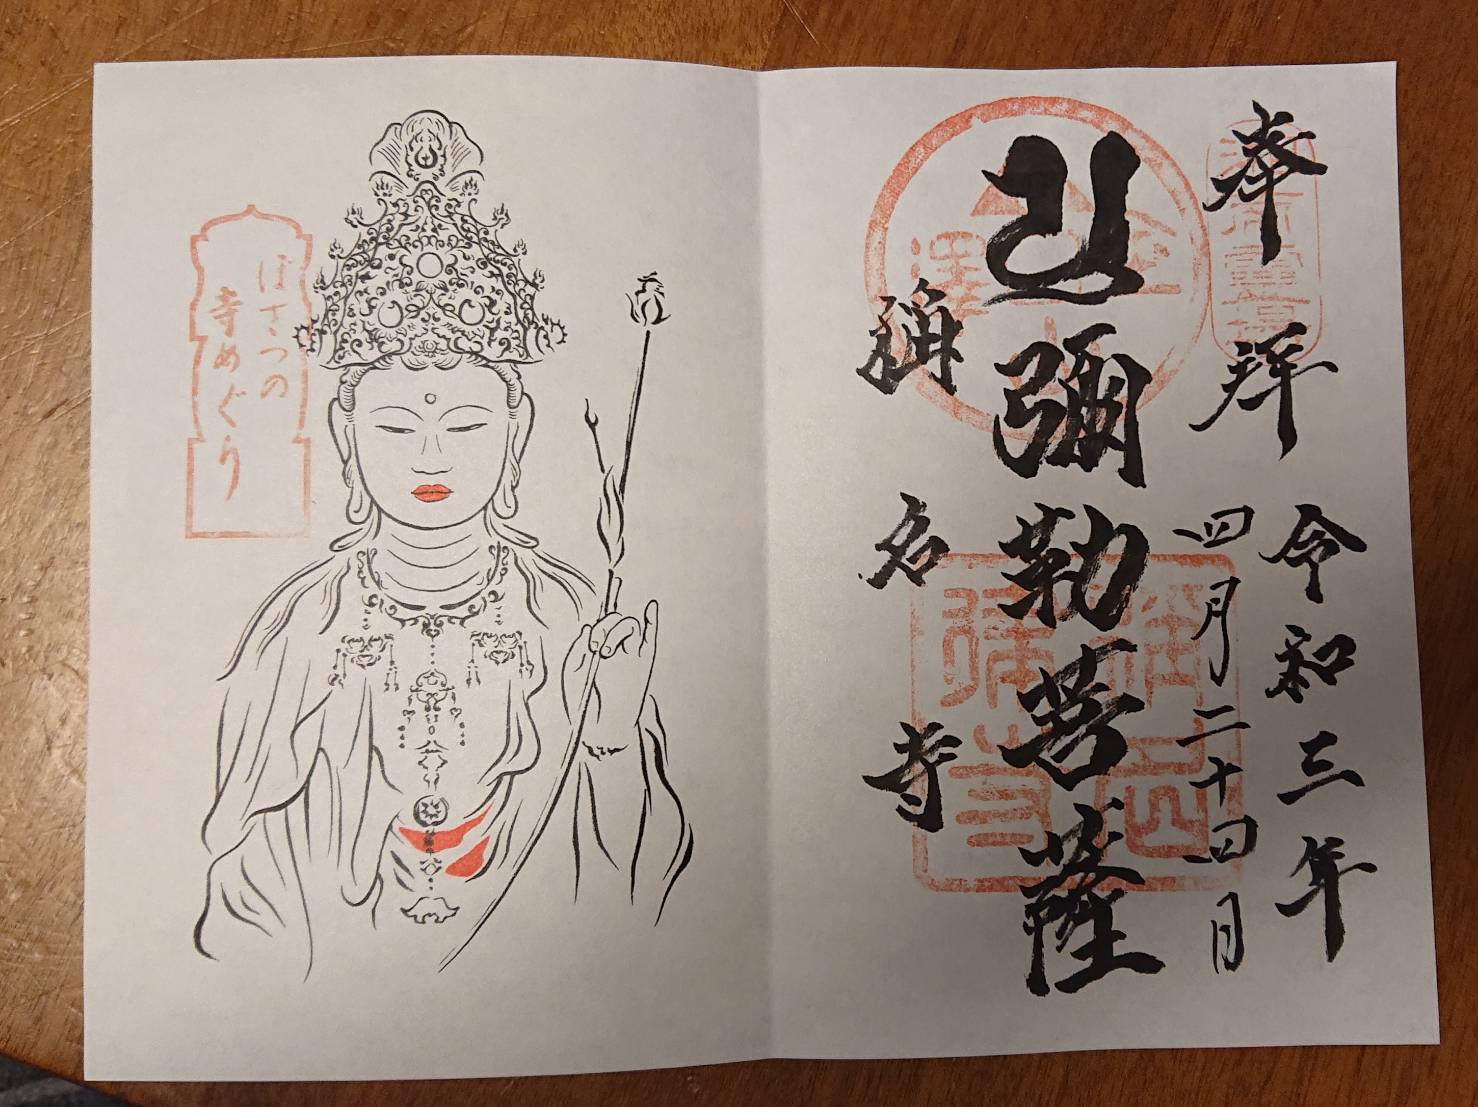 奉拝
令和三年
四月二十四日
彌勒菩薩
称名寺
ぼさつの
寺めぐり